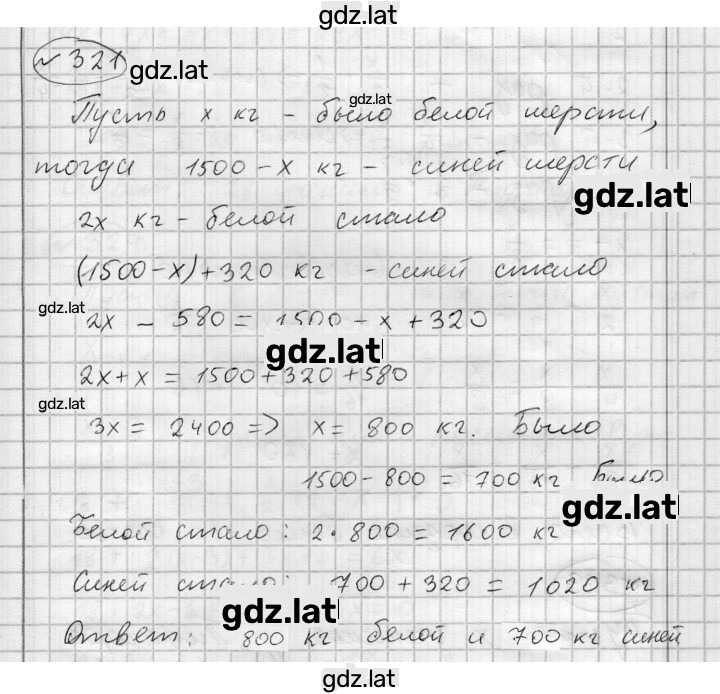 gdz.lat
№ 321
gdz.lat
gdz.lat
Пусть x кг - было белой шерсти,
тогда 1500 - x кг - синей шерсти
gdz.lat
2x кг - белой стало
(1500 - x) + 320 кг - синей стало
gdz.lat
2x - 580 = 1500 - x + 320
gdz.lat
2x + x = 1500 + 320 + 580
gdz.lat
3x = 2400 => x = 800 кг. Было
1500 - 800 = 700 кг Было
gdz.lat
Белой стало: 2 · 800 = 1600 кг
Синей стало: 700 + 320 = 1020 кг
gdz.lat
Ответ: 800 кг белой и 700 кг синей
gdz.lat